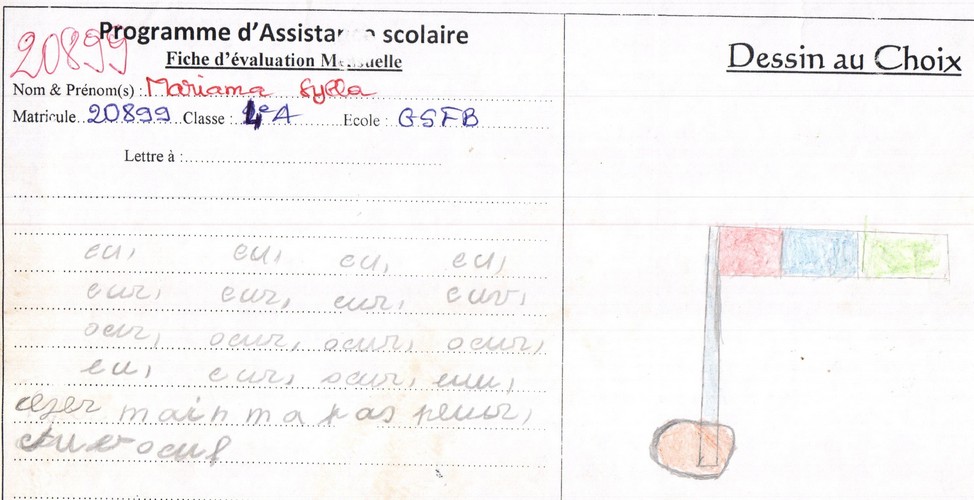 20899
Programme d'Assistance scolaire
Fiche d'évaluation Mensuelle
Nom & Prénom(s) : Mariama Sylla
Matricule 20899 Classe : 4e A Ecole : GSFB
Lettre à :
eu, eu, eu, eu,
eur, eur, eur, eur,
oeur, oeur, oeur, oeur,
eu, eur, oeur,
main ma pas peur,
oeuf
Dessin au Choix